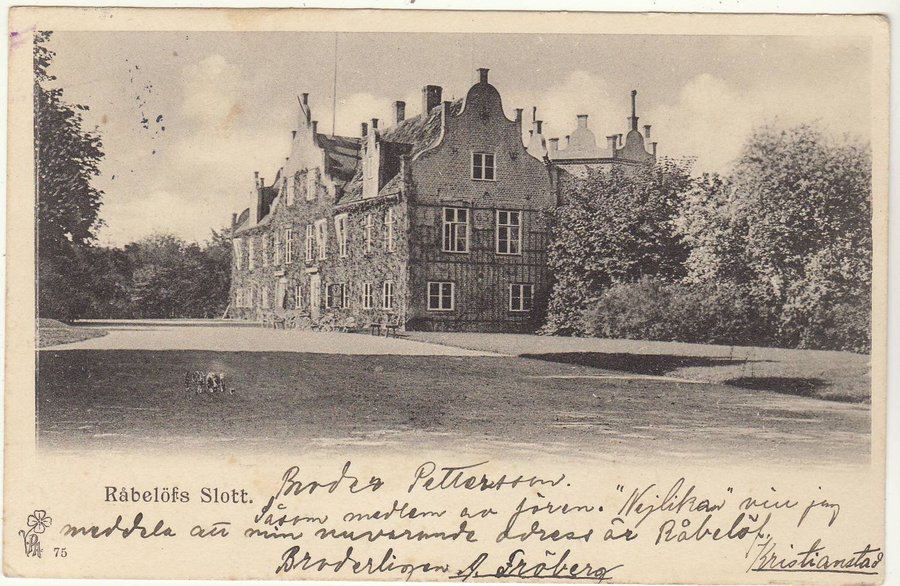 Råbelöfs Slott.
Broder Pettersson.
Såsom medlem av fören. "Nejlikan" vill jag
meddela att min nuvarande adress är Råbelöf,
Kristianstad
Broderligen A. Fröberg
75